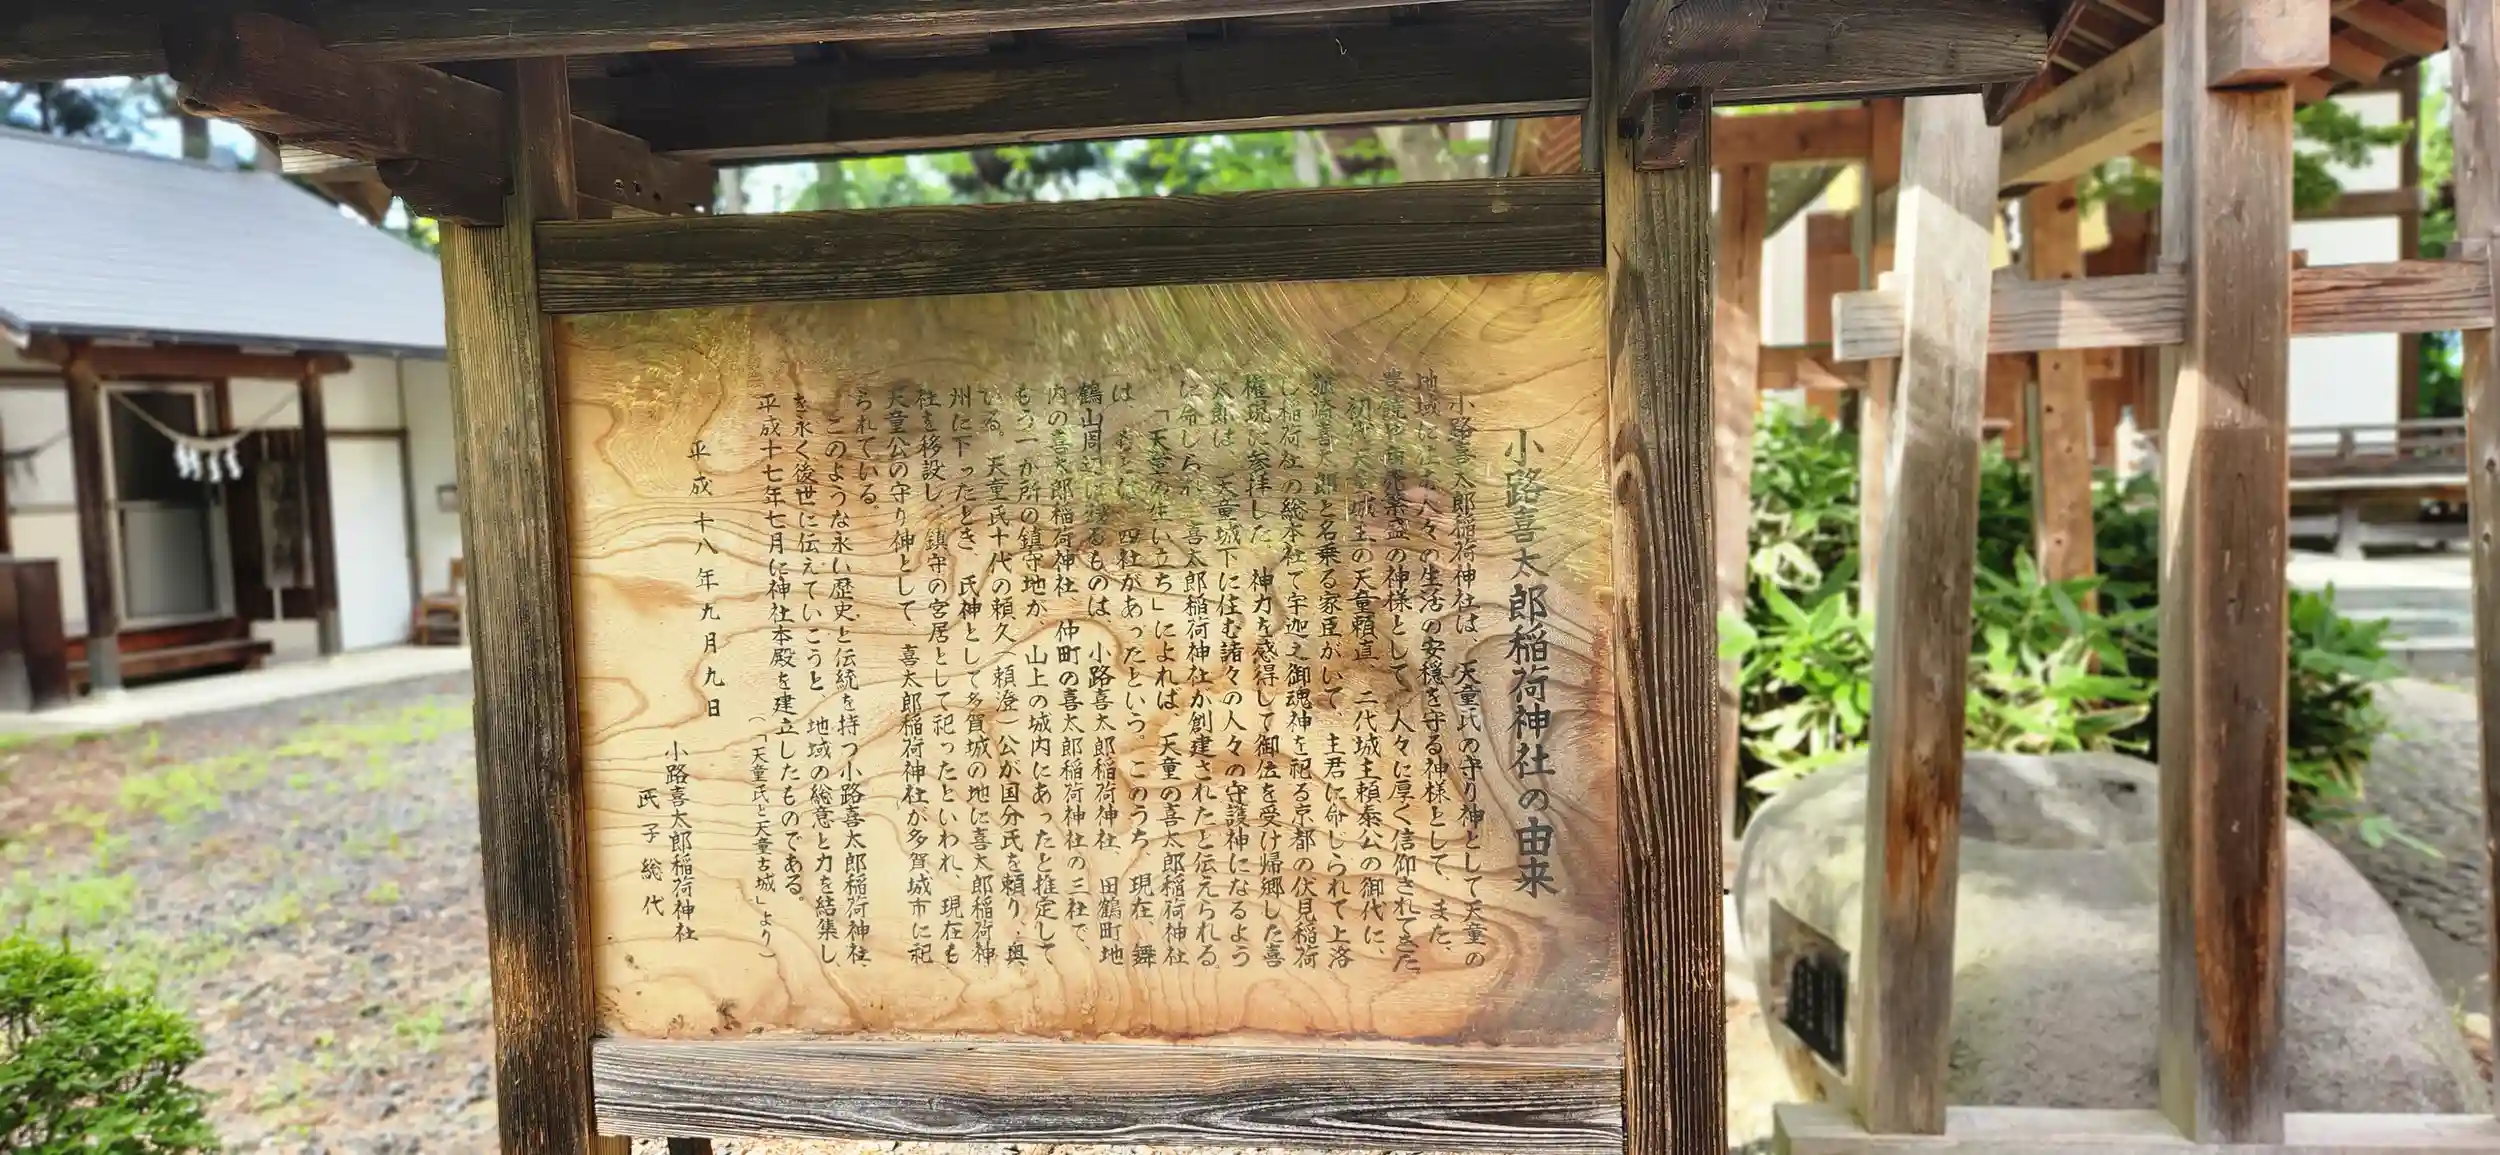 小路喜太郎稲荷神社の由来
小路喜太郎稲荷神社は、天童氏の守り神として天童の
地域に住む人々の生活の安穏を守る神様として、また、
豊饒や商売繁盛の神様として、人々に厚く信仰されてきた。
初代天童城主の天童頼直、二代城主頼泰公の御代に、
狐崎喜太郎と名乗る家臣がいて、主君に命じられて上洛
し稲荷社の総本社で宇迦之御魂神を祀る京都の伏見稲荷
権現に参拝した。神力を感得して御位を受け帰郷した喜
太郎は、天童城下に住む諸々の人々の守護神になるよう
に命じられ、喜太郎稲荷神社が創建されたと伝えられる。
「天童の生い立ち」によれば、天童の喜太郎稲荷神社
は、もとは、四社があったという。このうち、現在、舞
鶴山周辺に残るものは、小路喜太郎稲荷神社、田鶴町地
内の喜太郎稲荷神社、仲町の喜太郎稲荷神社の三社で、
もう一か所の鎮守地が、山上の城内にあったと推定して
いる。天童氏十代の頼久(頼澄)公が国分氏を頼り、奥
州に下ったとき、氏神として多賀城の地に喜太郎稲荷神
社を移設し、鎮守の宮居として祀ったといわれ、現在も
天童公の守り神として、喜太郎稲荷神社が多賀城市に祀
られている。
このような永い歴史と伝統を持つ小路喜太郎稲荷神社
を永く後世に伝えていこうと、地域の総意と力を結集し、
平成十七年七月に神社本殿を建立したものである。
(「天童氏と天童古城」より)
平成十八年九月九日
小路喜太郎稲荷神社
氏子総代